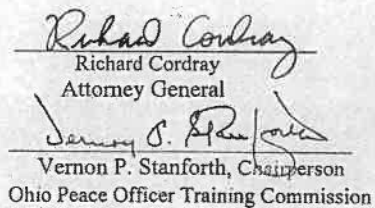 Richard Cordray
Richard Cordray
Attorney General
Vernon P. Stanforth
Vernon P. Stanforth, Chairperson
Ohio Peace Officer Training Commission